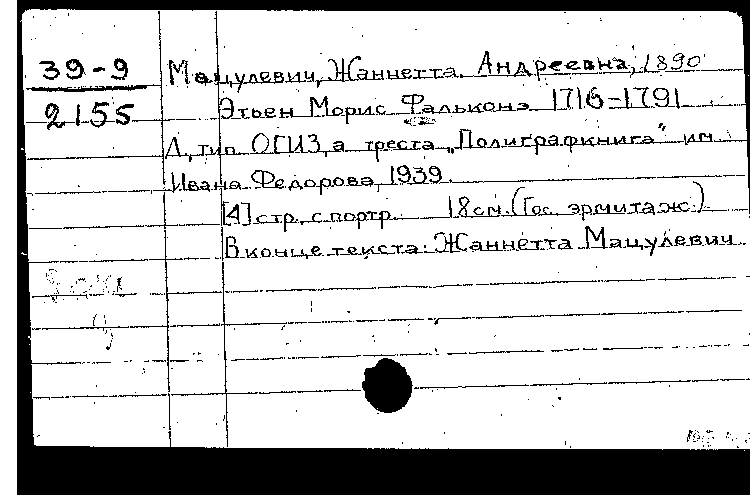 39-9
2155
Мацулевич, Жаннетта Андреевна, 1890
Этьен Морис Фальконэ 1716-1791
Л, тип ОГИЗ,а треста „Полиграфкнига" им.
Ивана Федорова, 1939.
[4] стр. с портр. 18 см. (Гос. эрмитаж)
В конце текста: Жаннетта Мацулевич